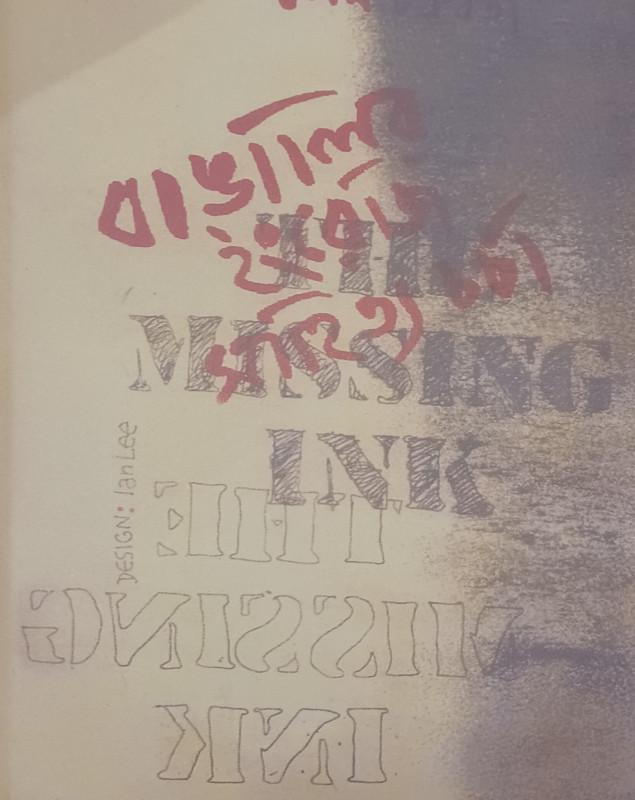 বাঙালির
ইংরেজি
সাহিত্য চর্চা
THE
MISSING
INK
DESIGN: Ian Lee
THE
MISSING
INK